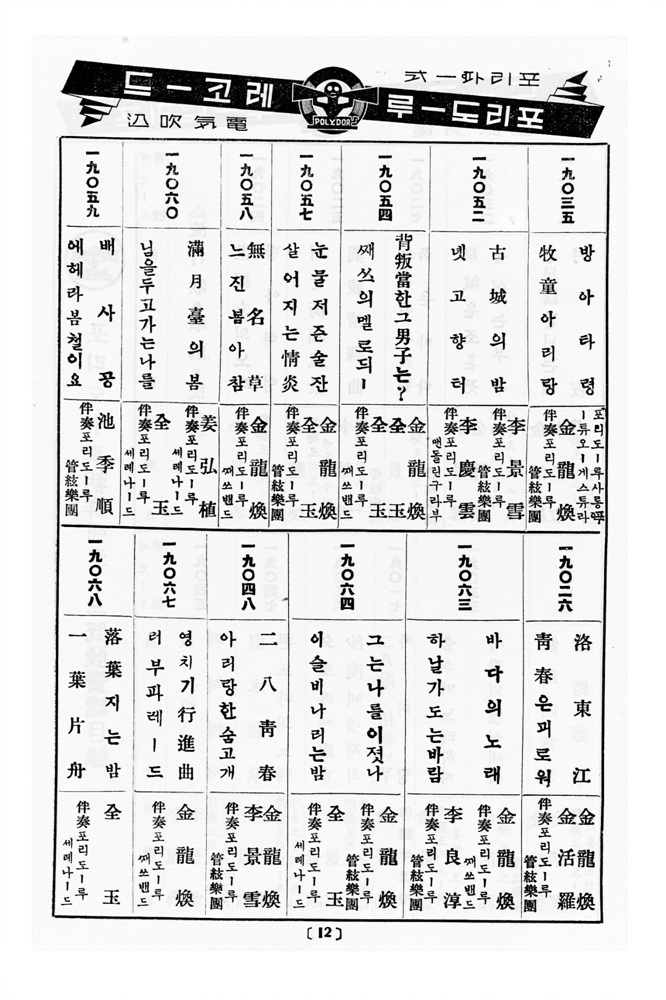 포리파ー式
포리도ー루
POLYDOR
레코ー드
電氣吹込
一九〇三五
방아타령
牧童아리랑
金龍煥
伴奏포리도ー루
管絃樂團
一九〇五二
古城의밤
녯고향터
李景雪
伴奏포리도ー루
管絃樂團
李慶雲
伴奏포리도ー루
맨돌린구라부
一九〇五四
背叛當한그男子는?
째쓰의멜로듸ー
金龍煥
全玉
伴奏포리도ー루
管絃樂團
全玉
伴奏포리도ー루
째쓰밴드
一九〇五七
눈물저즌술잔
살어지는情炎
金龍煥
全玉
伴奏포리도ー루
管絃樂團
一九〇五八
無名草
느진봄아참
金龍煥
伴奏포리도ー루
째쓰밴드
一九〇六〇
滿月臺의봄
님을두고가는나를
姜弘植
伴奏포리도ー루
세레나ー드
全玉
伴奏포리도ー루
세레나ー드
一九〇五九
배사공
에헤라봄철이요
池季順
伴奏포리도ー루
管絃樂團
一九〇二六
洛東江
靑春은괴로워
金龍煥
金活羅
伴奏포리도ー루
管絃樂團
一九〇六三
바다의노래
하날가도는바람
金龍煥
伴奏포리도ー루
째쓰밴드
李良淳
伴奏포리도ー루
管絃樂團
一九〇六四
그는나를이젓나
이슬비나리는밤
金龍煥
伴奏포리도ー루
管絃樂團
全玉
伴奏포리도ー루
세레나ー드
一九〇四八
二八靑春
아리랑한숨고개
金龍煥
李景雪
伴奏포리도ー루
管絃樂團
一九〇六七
영치기行進曲
러부파레ー드
金龍煥
伴奏포리도ー루
째쓰밴드
一九〇六八
落葉지는밤
一葉片舟
全玉
伴奏포리도ー루
세레나ー드
〔12〕